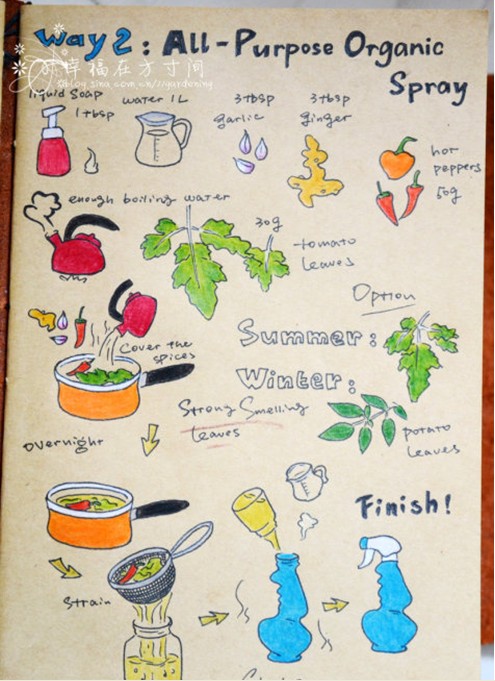 Way 2: All-Purpose Organic
Spray
幸福在方寸间
blog.sina.com.cn/yardening
liquid soap
1 tbsp
water 1L
3 tbsp
garlic
3 tbsp
ginger
hot
peppers
50g
enough boiling water
30g
tomato
leaves
Option
Cover the
spices
Summer:
Winter:
Strong Smelling
leaves
potato
leaves
overnight
Finish!
Strain